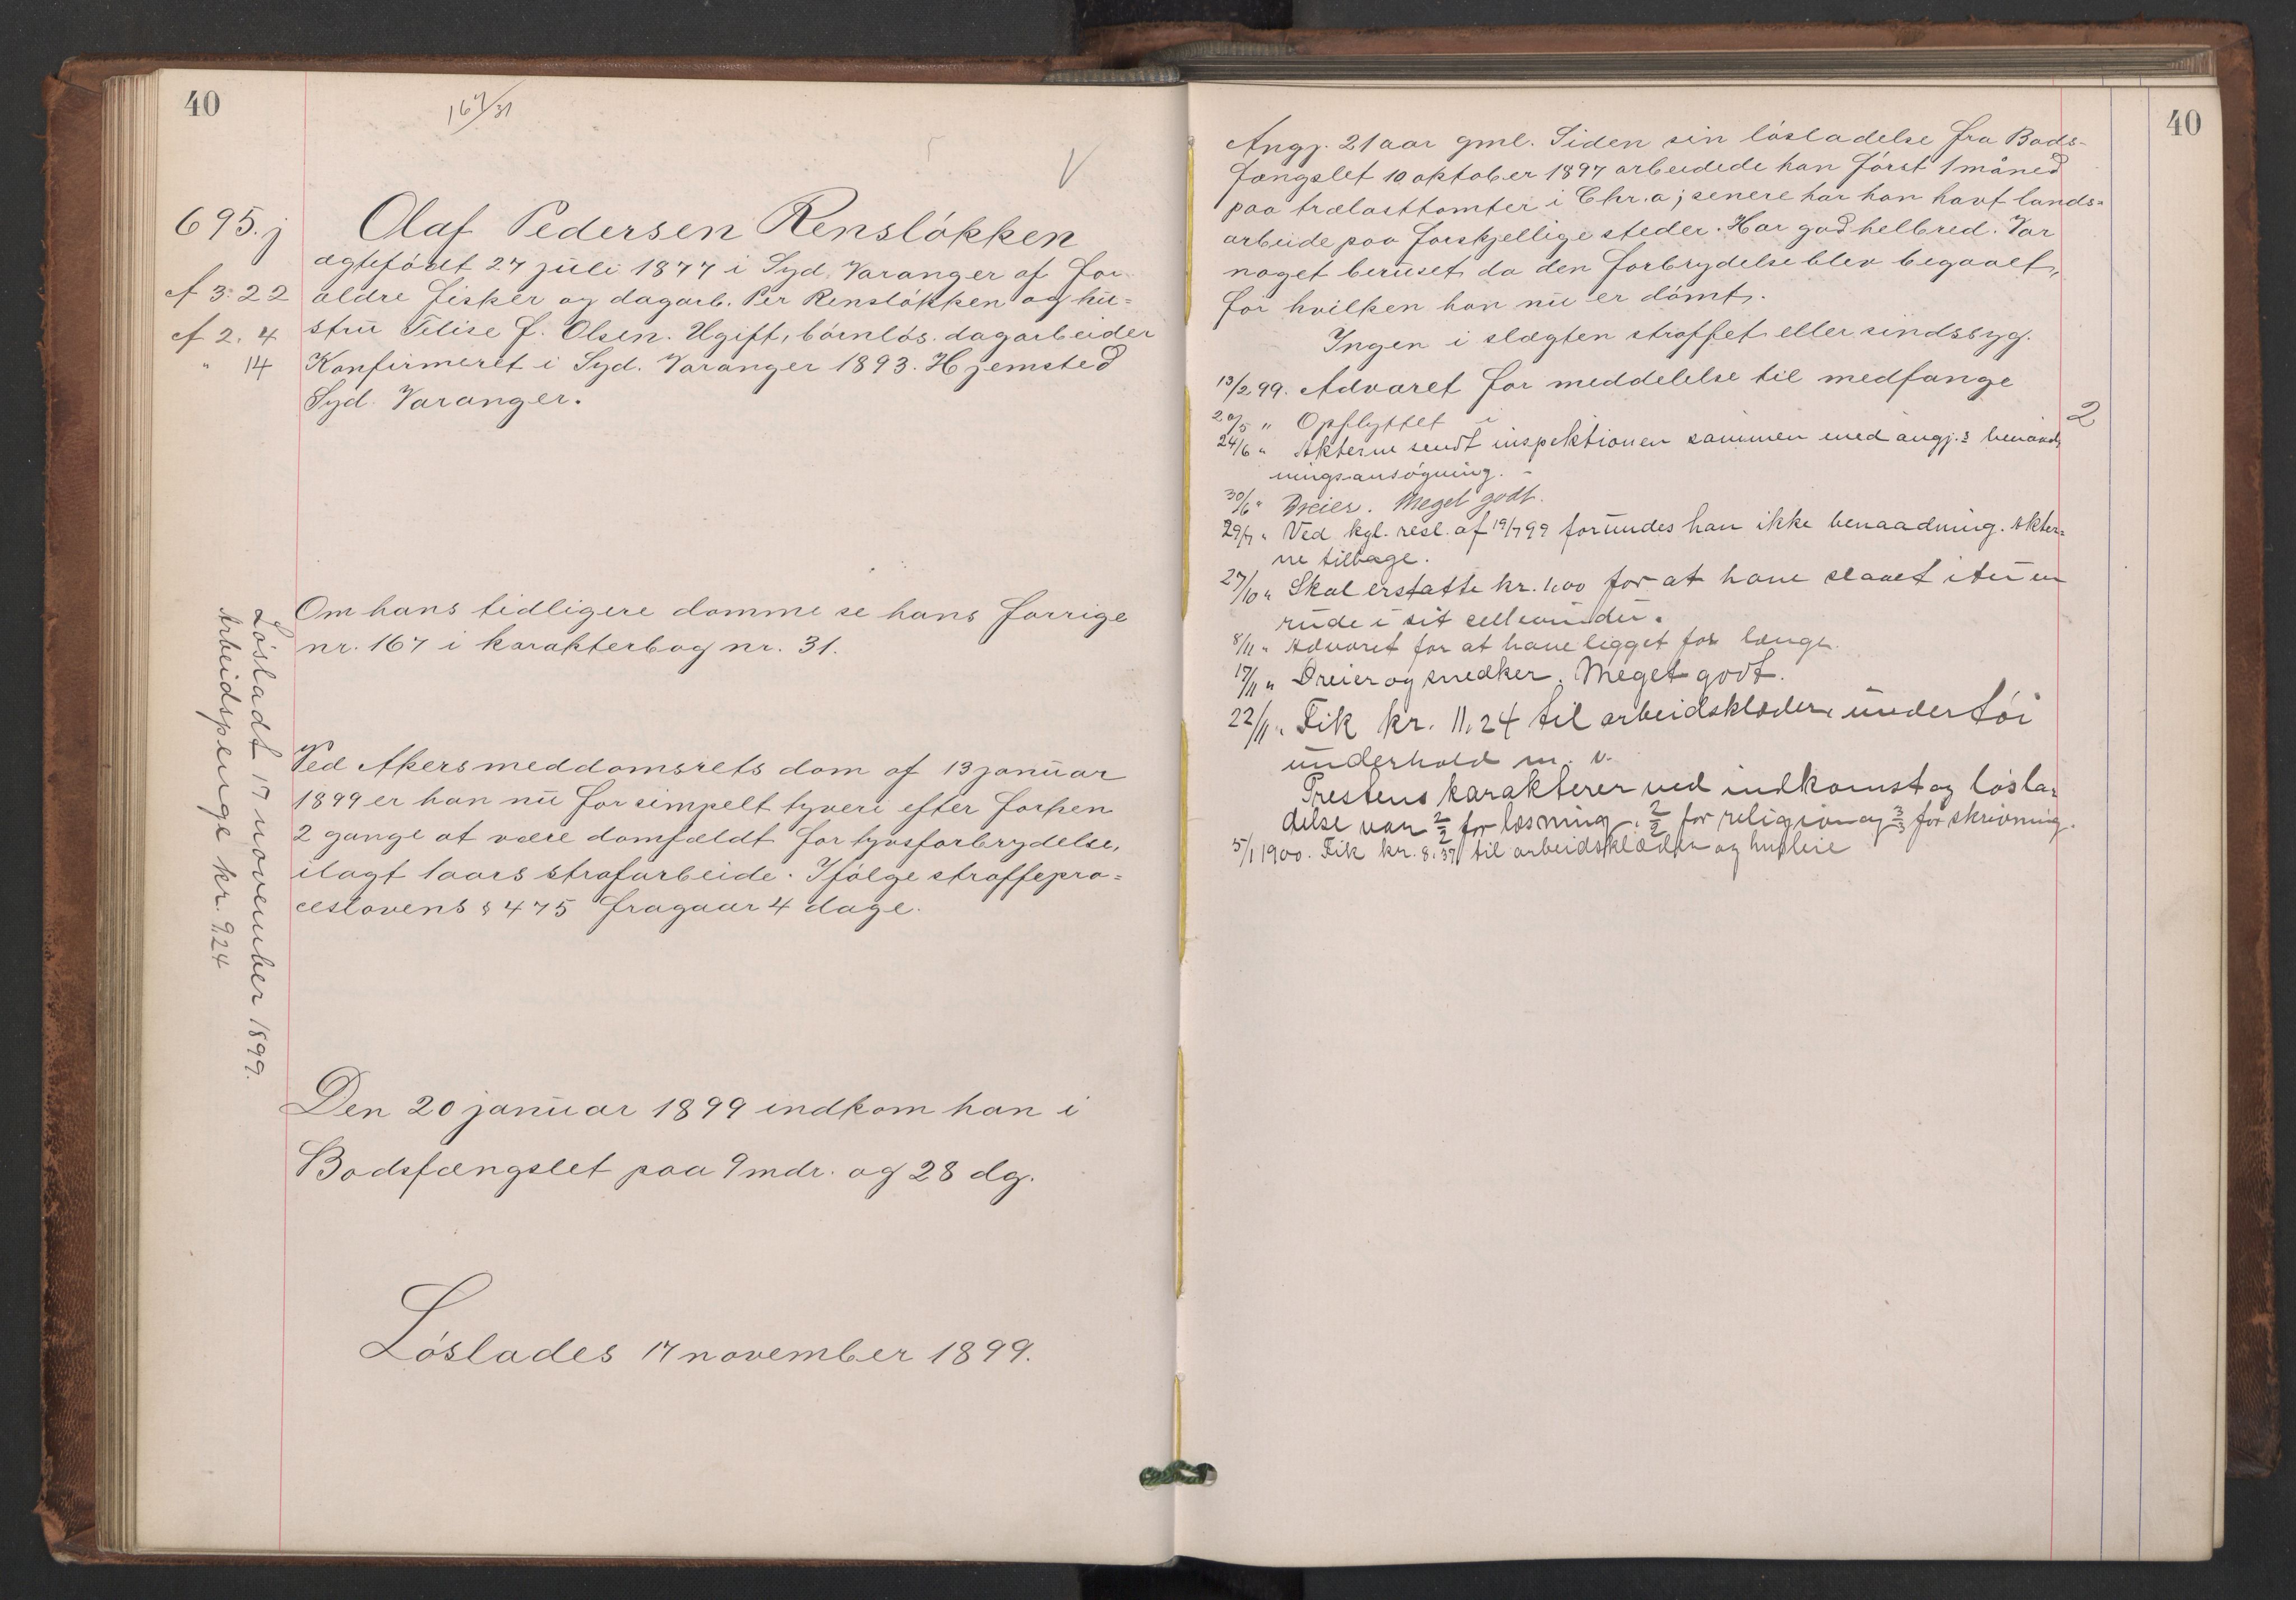 40
167/31
V
695.j
Olaf Pedersen Rensløkken
ægtefødt 27 juli 1877 i Syd. Varanger af for
cf 3: 22
ældre fisker og dagarb. Per Rensløkken og hu=
cf 2. 4
stru Filise f. Olsen. Ugift, børnløs. dagarbeider
" 14
Konfirmeret i Syd. Varanger 1893. Hjemsted
Syd. Varanger.
Om hans tidligere domme se hans forrige
nr. 167 i karakterbog nr. 31.
Løsladt 17 november 1899.
Arbeidspenge kr. 9,24
Ved Akers meddomsrets dom af 13 januar
1899 er han nu for simpelt tyveri efter forhen
2 gange at være domfældt for tyvsforbrydelse,
ilagt 1 aars strafarbeide. Ifølge straffepro=
ceslovens § 475 fragaar 4 dage.
Den 20 januar 1899 indkom han i
Bodsfængslet paa 9 mdr. og 28 dg.
Løslades 17 november 1899.
40
Angj. 21 aar gml. Siden sin løsladelse fra Bods-
fængslet 10 oktober 1897 arbeidede han først 1 måned
paa trælasttomter i Chr.a; senere har han havt lands=
arbeide paa forskjellige steder. Har god helbred. Var
noget beruset, da den forbrydelse blev begaaet,
for hvilken han nu er dømt.
Ingen i slægten straffet eller sindssyg.
13/2 99. Advaret for meddelelse til medfange
20/5 " Opflyttet i 2
24/6 " Akterne sendt inspektionen sammen med angj.s benaad=
ningsansøgning. -
30/6 " Dreier. Meget godt.
29/7 " Ved kgl. resl. af 19/7 99 forundes han ikke benaadning. Akter=
ne tilbage.
27/10 " Skal erstatte kr. 1,00 for at have slaaet itu en
rude i sit cellevindu.
8/11 " Advaret for at have ligget for længe.
17/11 " Dreier og snedker. Meget godt.
22/11 " Fik kr. 11,24 til arbeidsklæder, undertøi
underhold m. v.
Prestens karakterer ved indkomst og løsla=
delse var 2/2 for læsning, 2/2 for religion og 3/3 for skrivning.
5/1 1900. Fik kr. 8,37 til arbeidsklæder og husleie